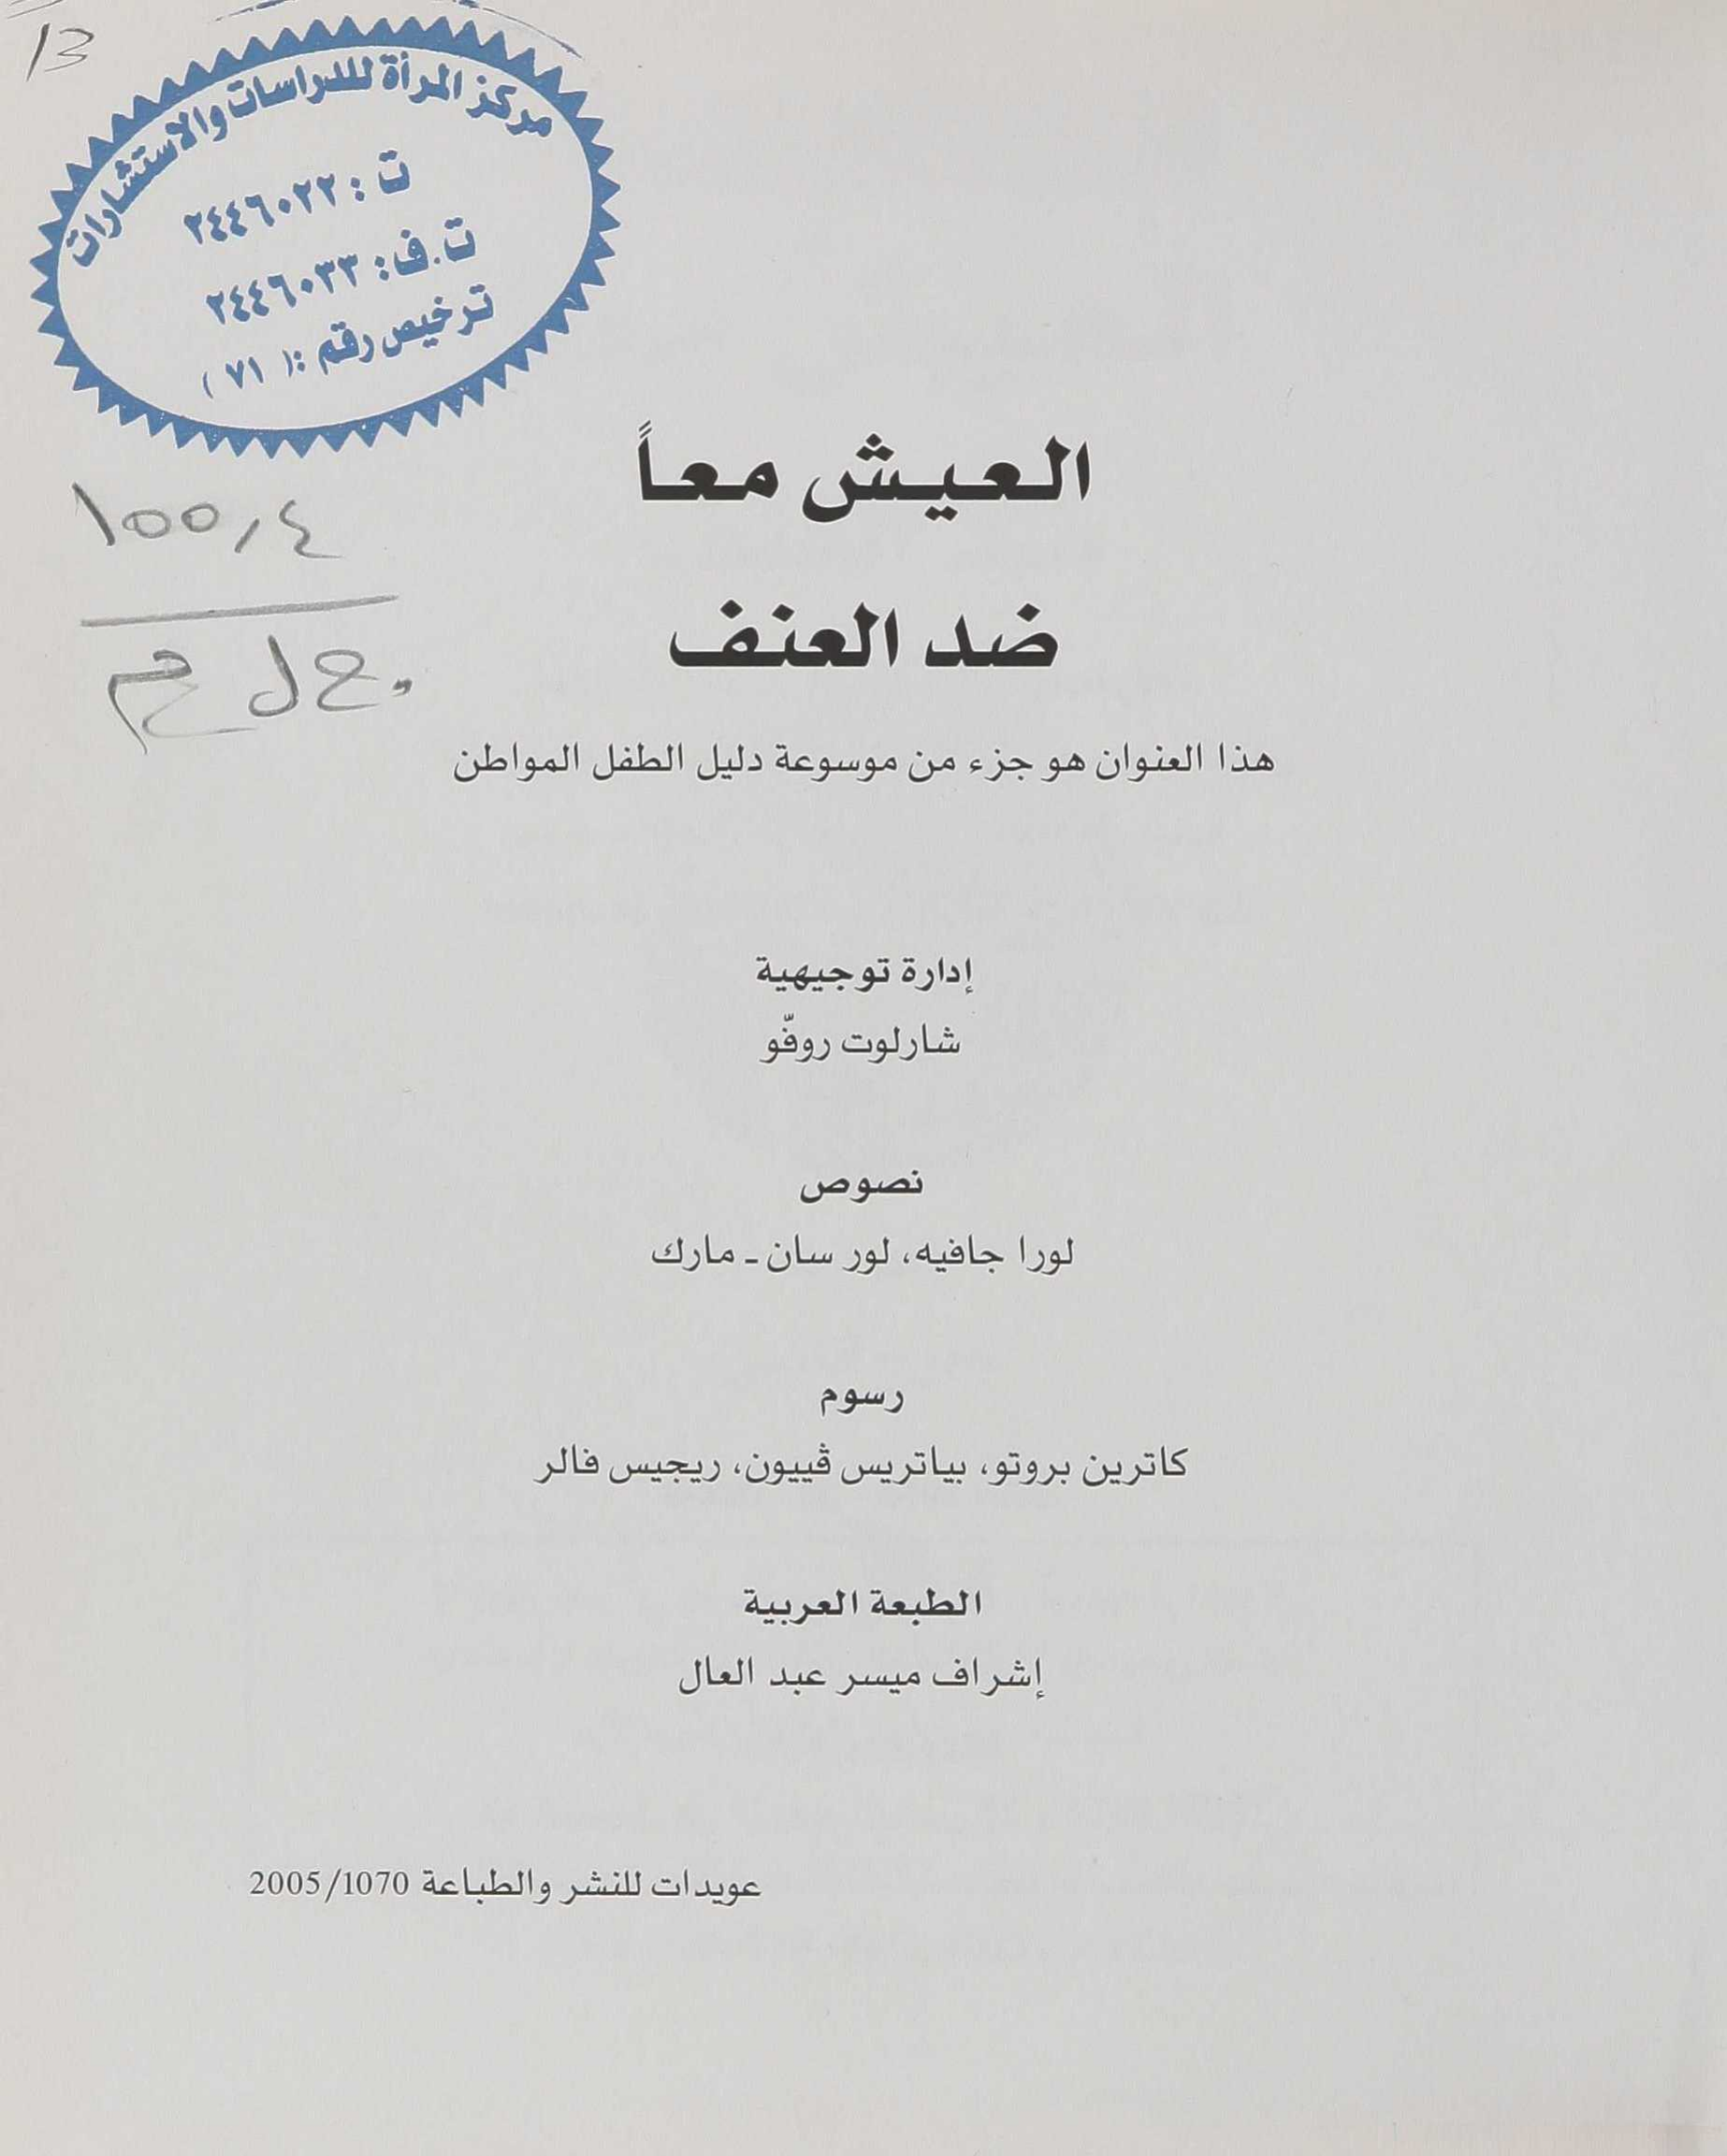 13
مركز المرأة للدراسات والاستشارات
ت : ٢٤٤٦٠٢٢
ت.ف: ٢٤٤٦٠٣٣
ترخيص رقم :( ٧١ )
العيش معاً
١٥٥,٤
ضد العنف
هذا العنوان هو جزء من موسوعة دليل الطفل المواطن
إدارة توجيهية
شارلوت روفّو
نصوص
لورا جافيه، لور سان ـ مارك
رسوم
كاترين بروتو، بياتريس ڤييون، ريجيس فالر
الطبعة العربية
إشراف ميسر عبد العال
عويدات للنشر والطباعة 2005/1070